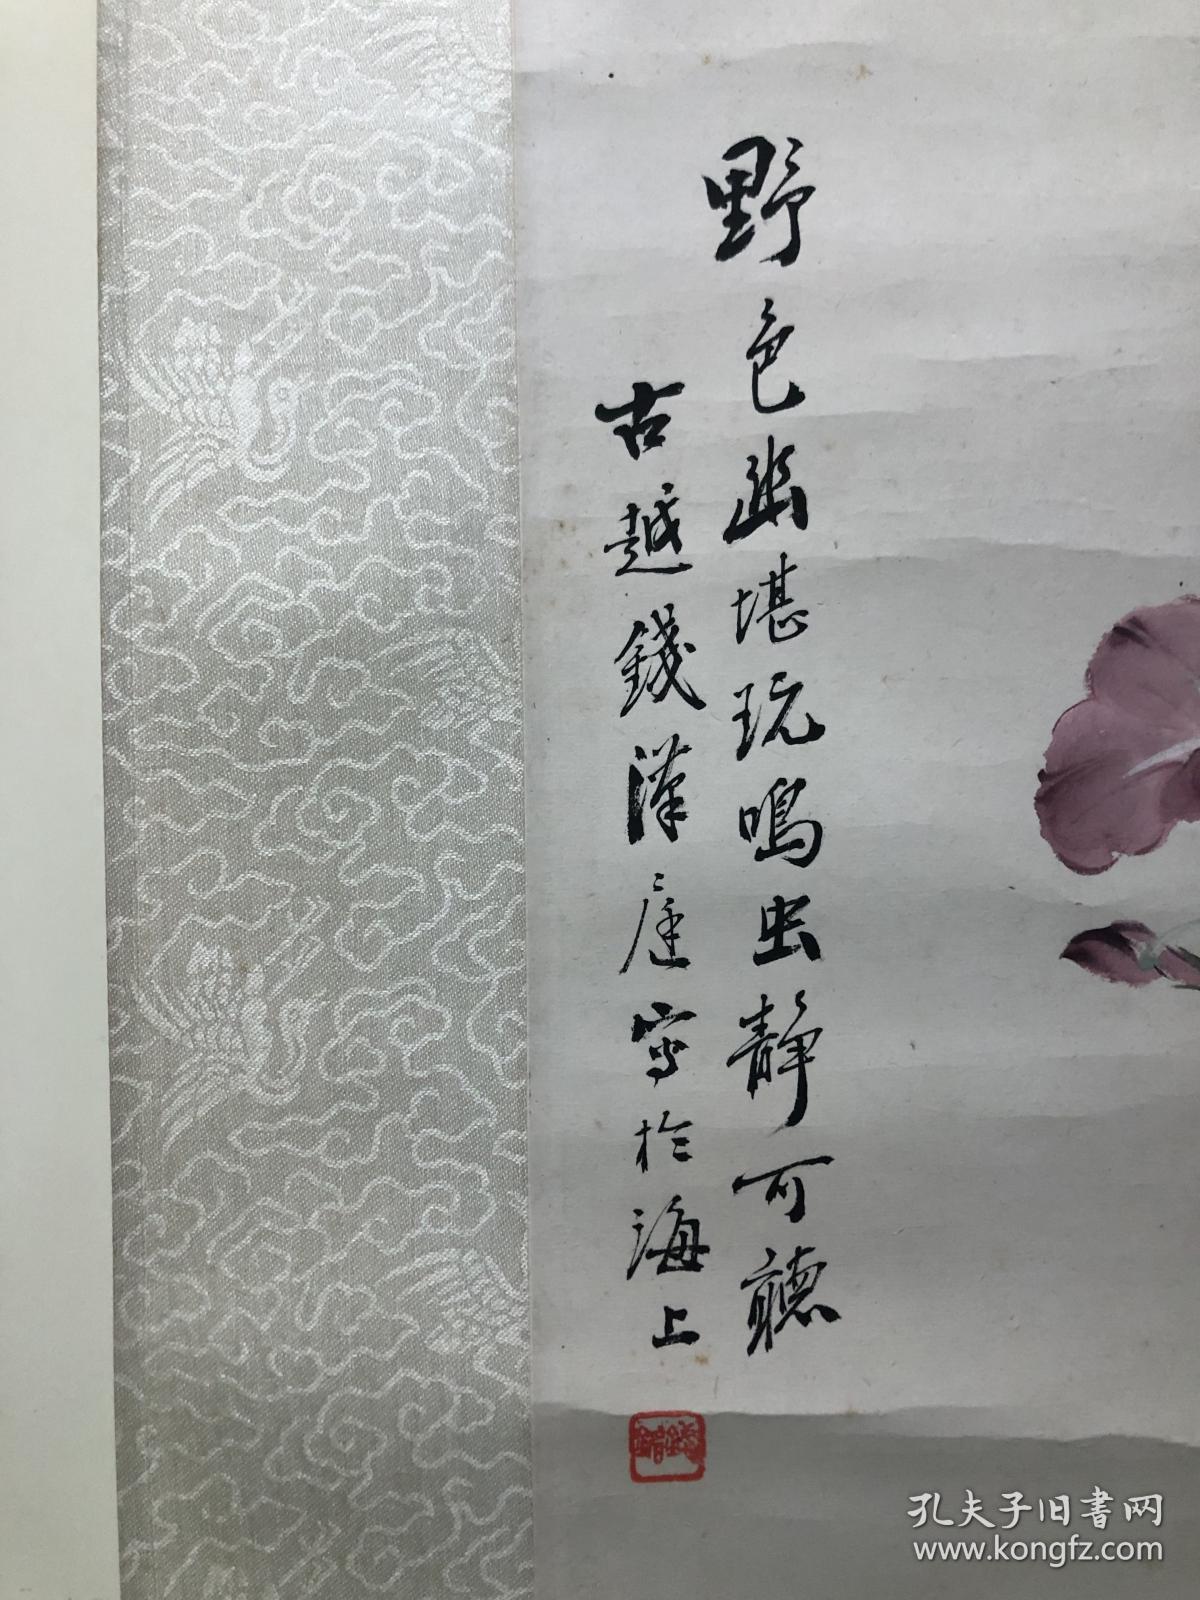 野色幽堪玩鳴虫静可聽
古越錢漢庭寫於海上
孔夫子旧書网
www.kongfz.com